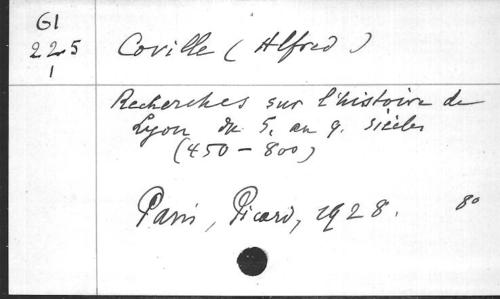 GI
225
1
Coville (Alfred)
Recherches sur l'histoire de
Lyon du 5. au 9. siècles
(450-800)
Paris, Picard, 1928. 8o